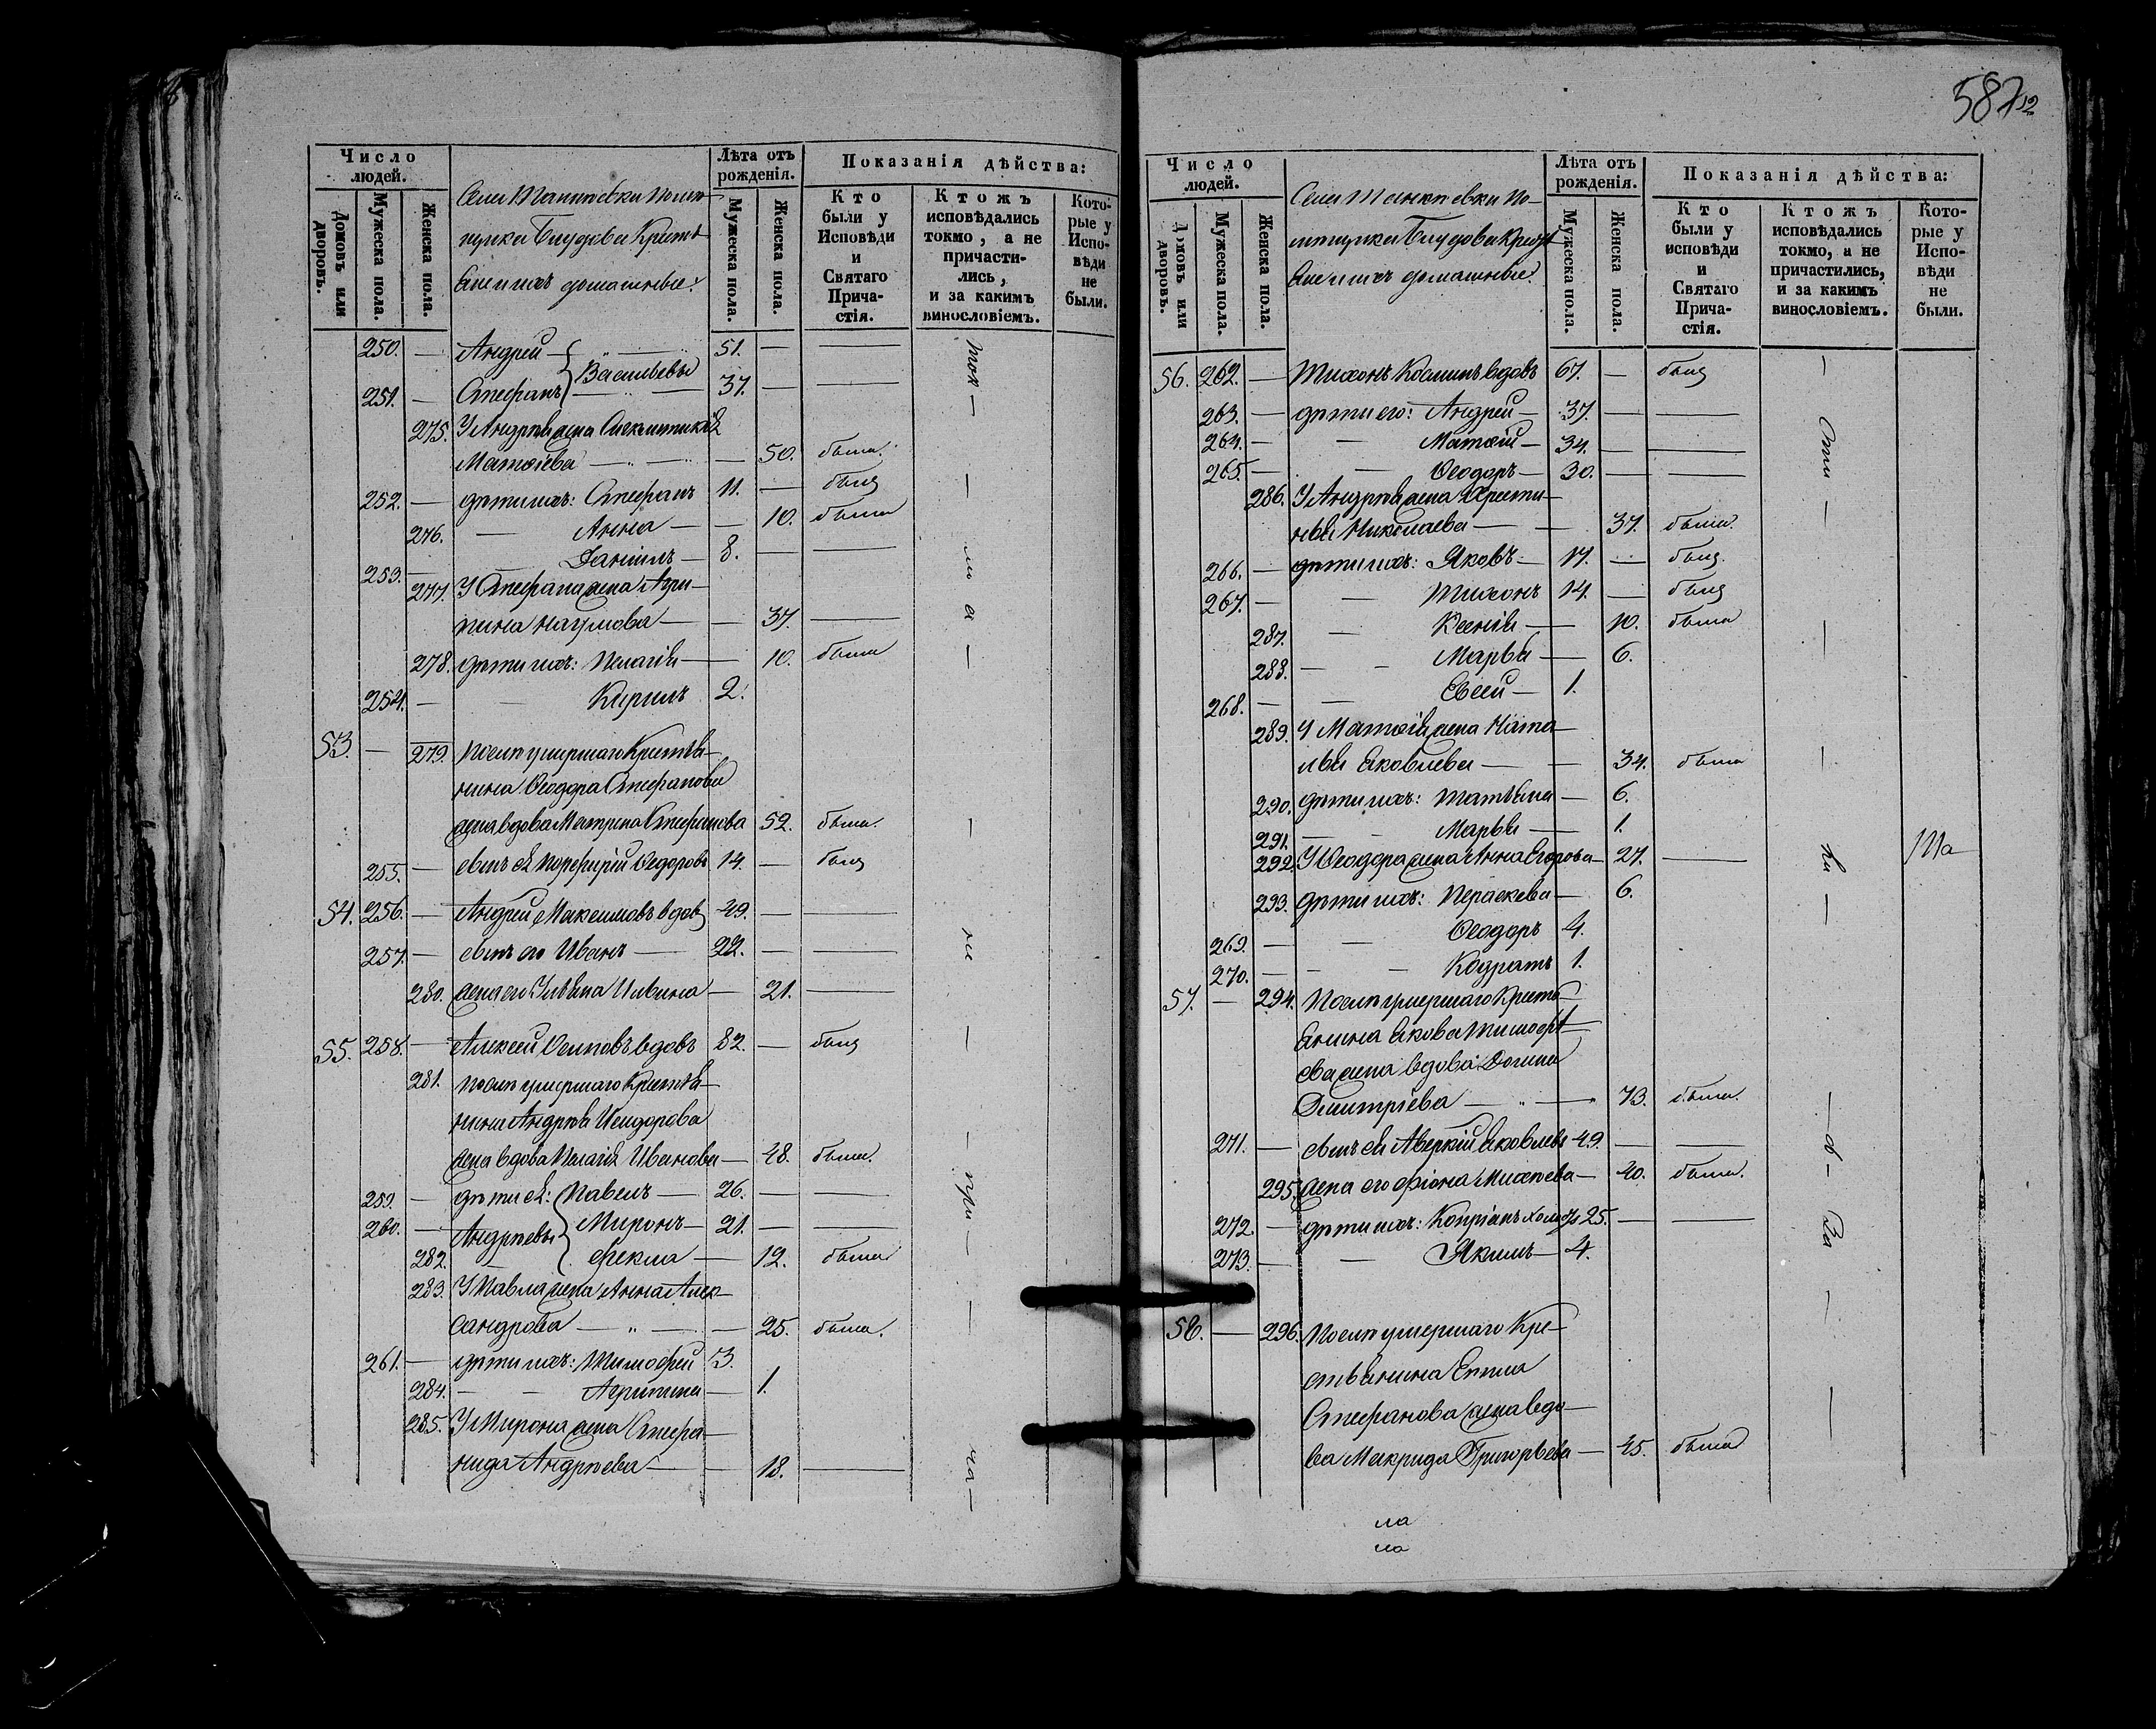 587 12
Число людей.
Лѣта отъ рожденія.
Показанія дѣйства:
Домовъ или дворовъ.
Мужеска пола.
Женска пола.
Села
Крестьяне и ихъ домашные:
Мужеска пола.
Женска пола.
Кто были у Исповѣди и Святаго Причастія.
Ктожъ исповѣдались токмо, а не причастились, и за какимъ винословіемъ.
Которые у Исповѣди не были.
250. — Андрей — 51. —
Васильевы
251. — Стефанъ 37. —
275. У Андрея жена
Матѳіева — 50. была.
252. — дѣти ихъ: Стефанъ 11. — былъ
276. — Анна — 10. была
253. — Даніилъ — 8. —
277. У Стефана жена Агри-
пина Наумова — 37.
278. дѣти ихъ: Пелагія — 10. была
254. — Кирилъ 2.
53. — 279. Послѣ умершаго Крестья-
нина Ѳеодора Стефанова
жена вдова Матрона Стефанова 52. была.
255. — сынъ ея Порфирій Ѳедоровъ 14. — былъ
54. 256. — Андрей Максимовъ вдовъ 49. —
257. — сынъ его Иванъ — 22. —
280. жена его Ульяна Ильина — 21.
55. 258. — Алексей Осиповъ вдовъ 82. — былъ
281. Послѣ умершаго Крестья-
нина Андрея Исидорова
жена вдова Пелагія Иванова — 48. была.
259. — дѣти ея: Павелъ — 26. —
260. — Андреевы Миронъ — 21. —
282. — Фекла — 12. была
283. У Павла жена Анна Алек-
сандрова — 25. была.
261. — дѣти ихъ: Тимофей 3.
284. — Агрипина — 1.
285. У Мирона жена Стефа-
нида Андреева — 18.
Число людей.
Лѣта отъ рожденія.
Показанія дѣйства:
Домовъ или дворовъ.
Мужеска пола.
Женска пола.
Села
Крестьяне и ихъ домашные:
Мужеска пола.
Женска пола.
Кто были у исповѣди и Святаго Причастія.
Ктожъ исповѣдались токмо, а не причастились, и за какимъ винословіемъ.
Которые у Исповѣди не были.
56. 262. — Тихонъ Косминъ вдовъ 67. — былъ
263. — дѣти его: Андрей — 37. —
264. — Матѳій — 34. —
265. — Ѳеодоръ — 30. —
286. У Андрея жена Христи-
нья Николаева — 37. была.
266. — дѣти ихъ: Яковъ — 17. — былъ.
267. — Тихонъ 14. — былъ
287. — Ксенія — 10. была
288. — Марья — 6.
268. — Евсей — 1.
289. У Матѳія жена Ната-
лья Яковлева — 34. была
290. дѣти ихъ: Татьяна — 6.
291. — Марья — 1.
292. У Ѳеодора жена Анна Егорова — 27.
293. дѣти ихъ: Параскева — 6.
269. — Ѳеодоръ 4.
270. — Кодратъ 1.
57. — 294. Послѣ умершаго Кресть-
янина Якова Тимофе-
ева жена вдова Домна
Дмитріева — 73. была.
271. — сынъ ея Аверкій Яковлевъ 49. —
295. жена его Фіона Михеева — 40. была.
272. — дѣти ихъ: Кипріанъ холостъ 25. —
273. — Якимъ — 4.
58. — 296. Послѣ умершаго Кре-
стьянина
Стефанова жена вдо-
ва Макрида Григорьева — 45. была
ла
ла